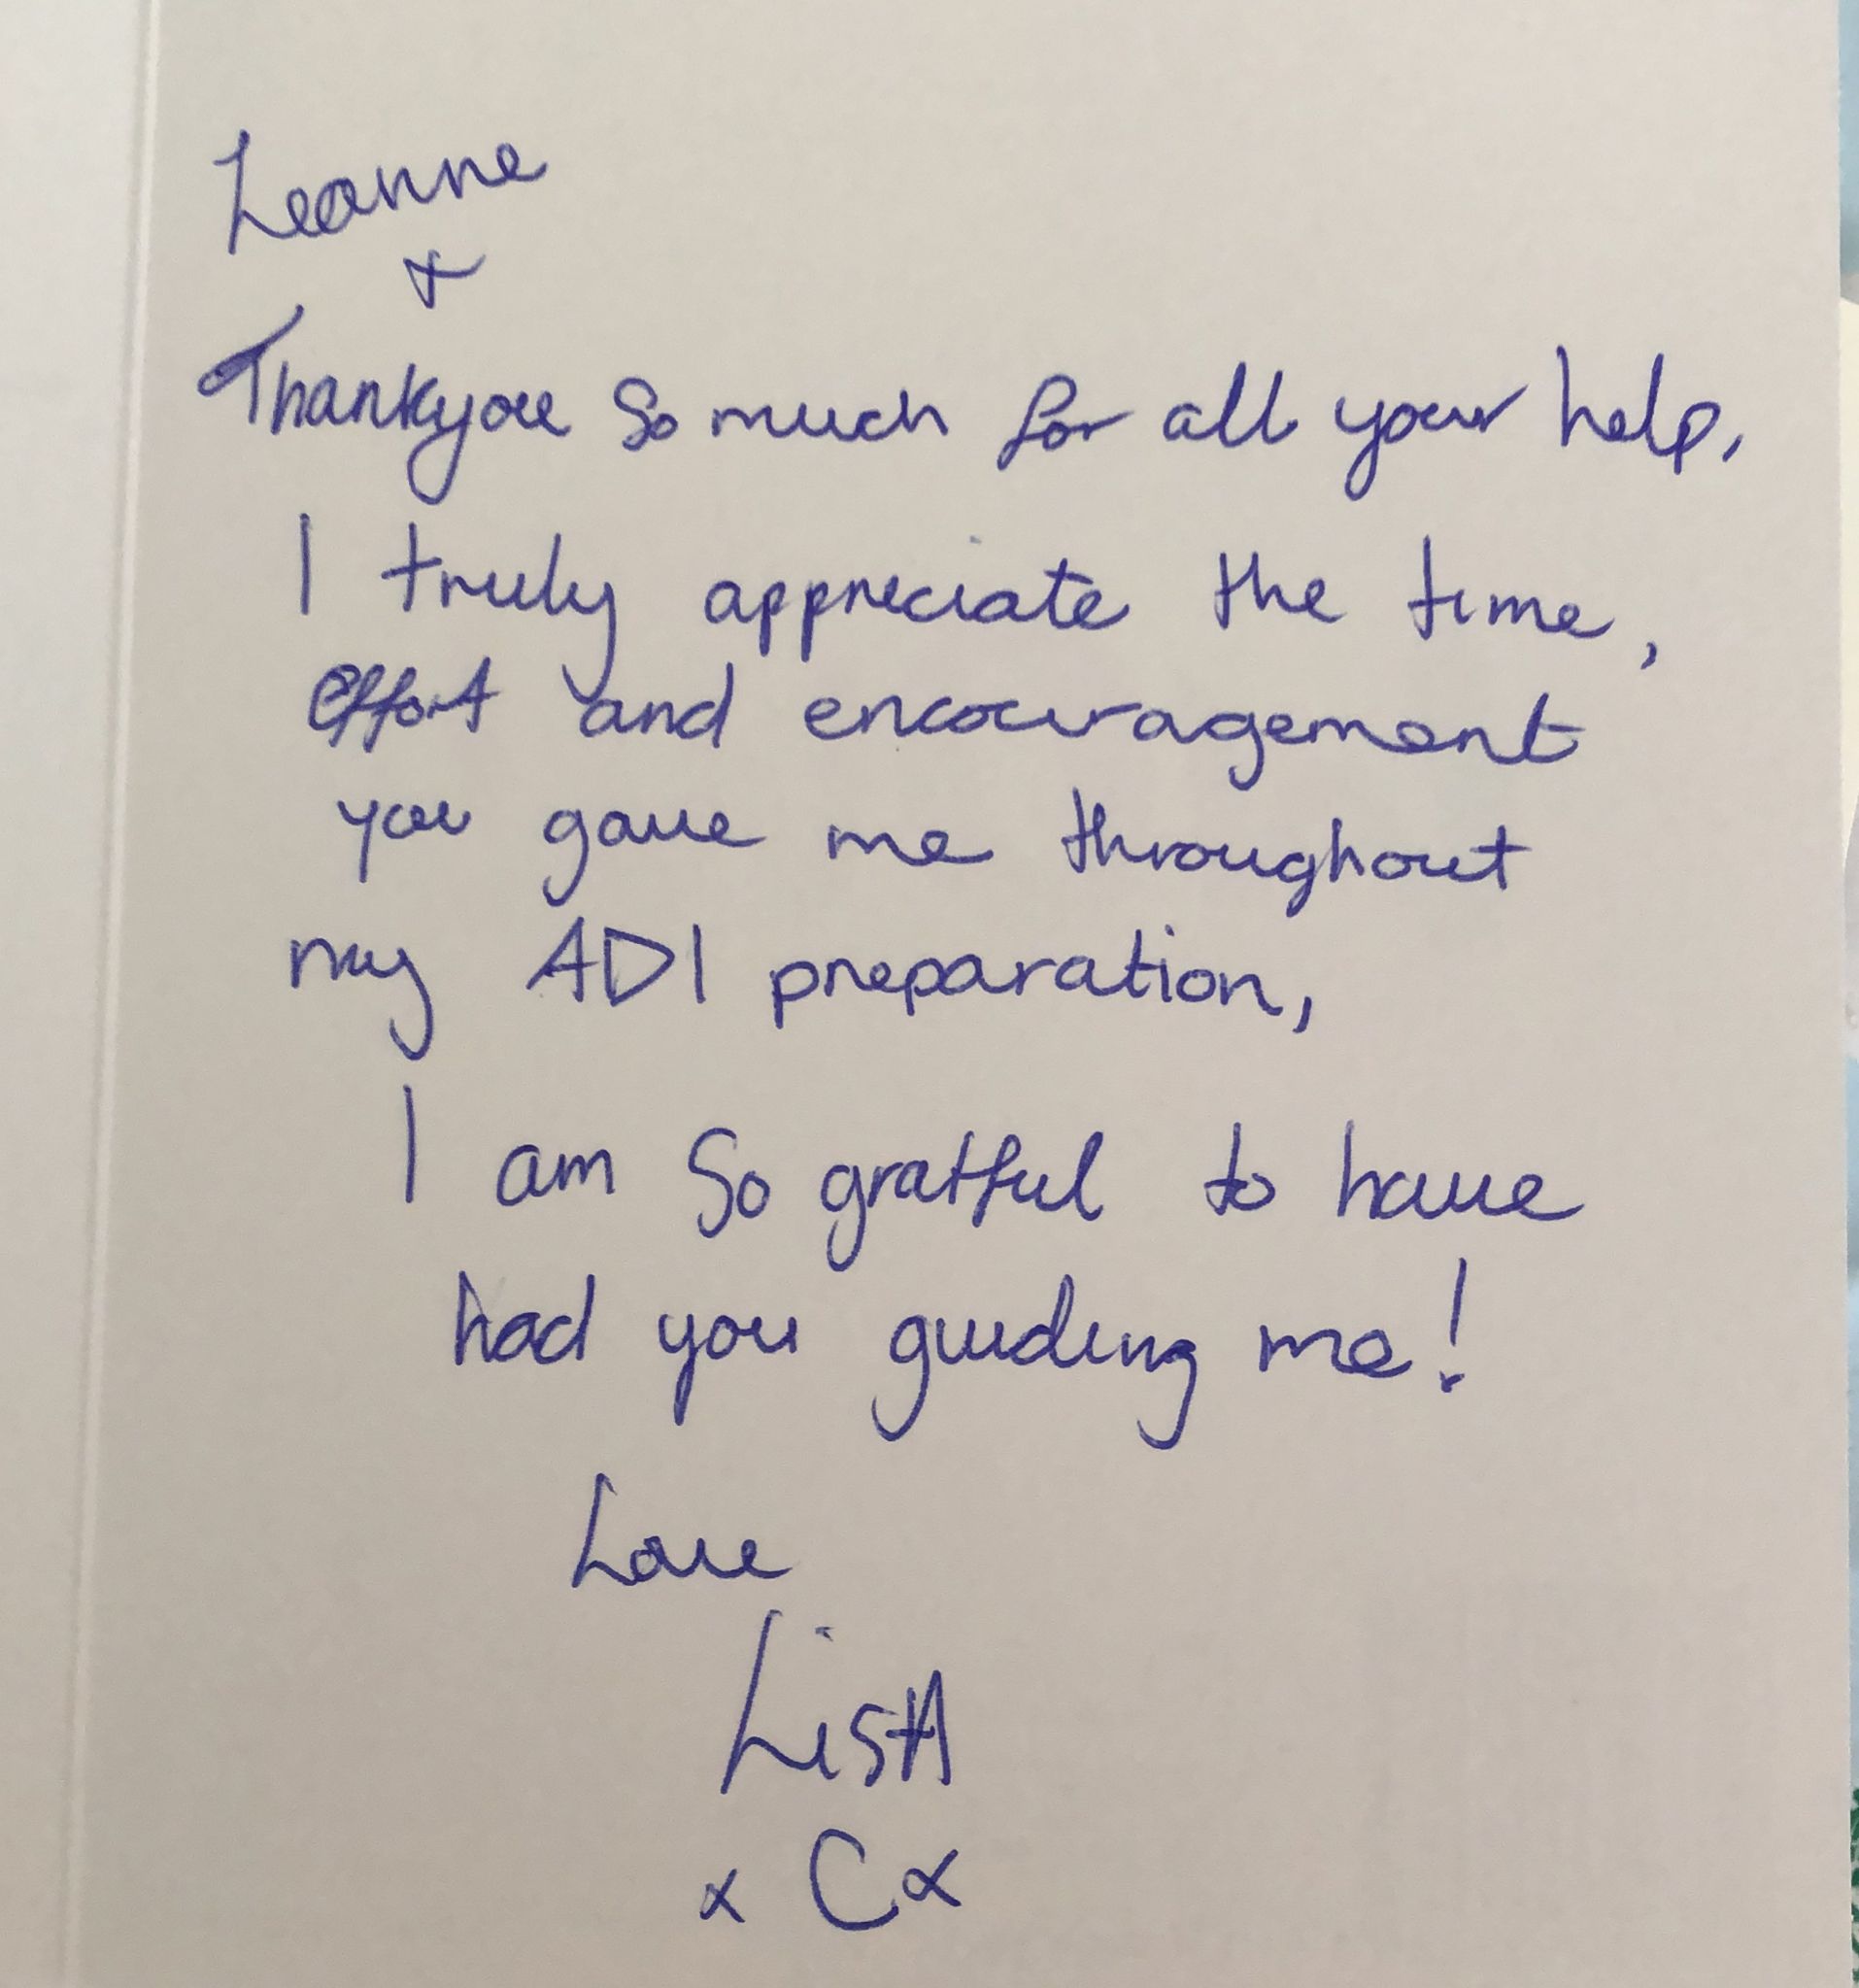 Leanne
x
Thankyou so much for all your help,
I truly appreciate the time,
effort and encouragement
you gave me throughout
my ADI preparation,
I am so gratful to have
had you guiding me!
Love
LisA
x C x